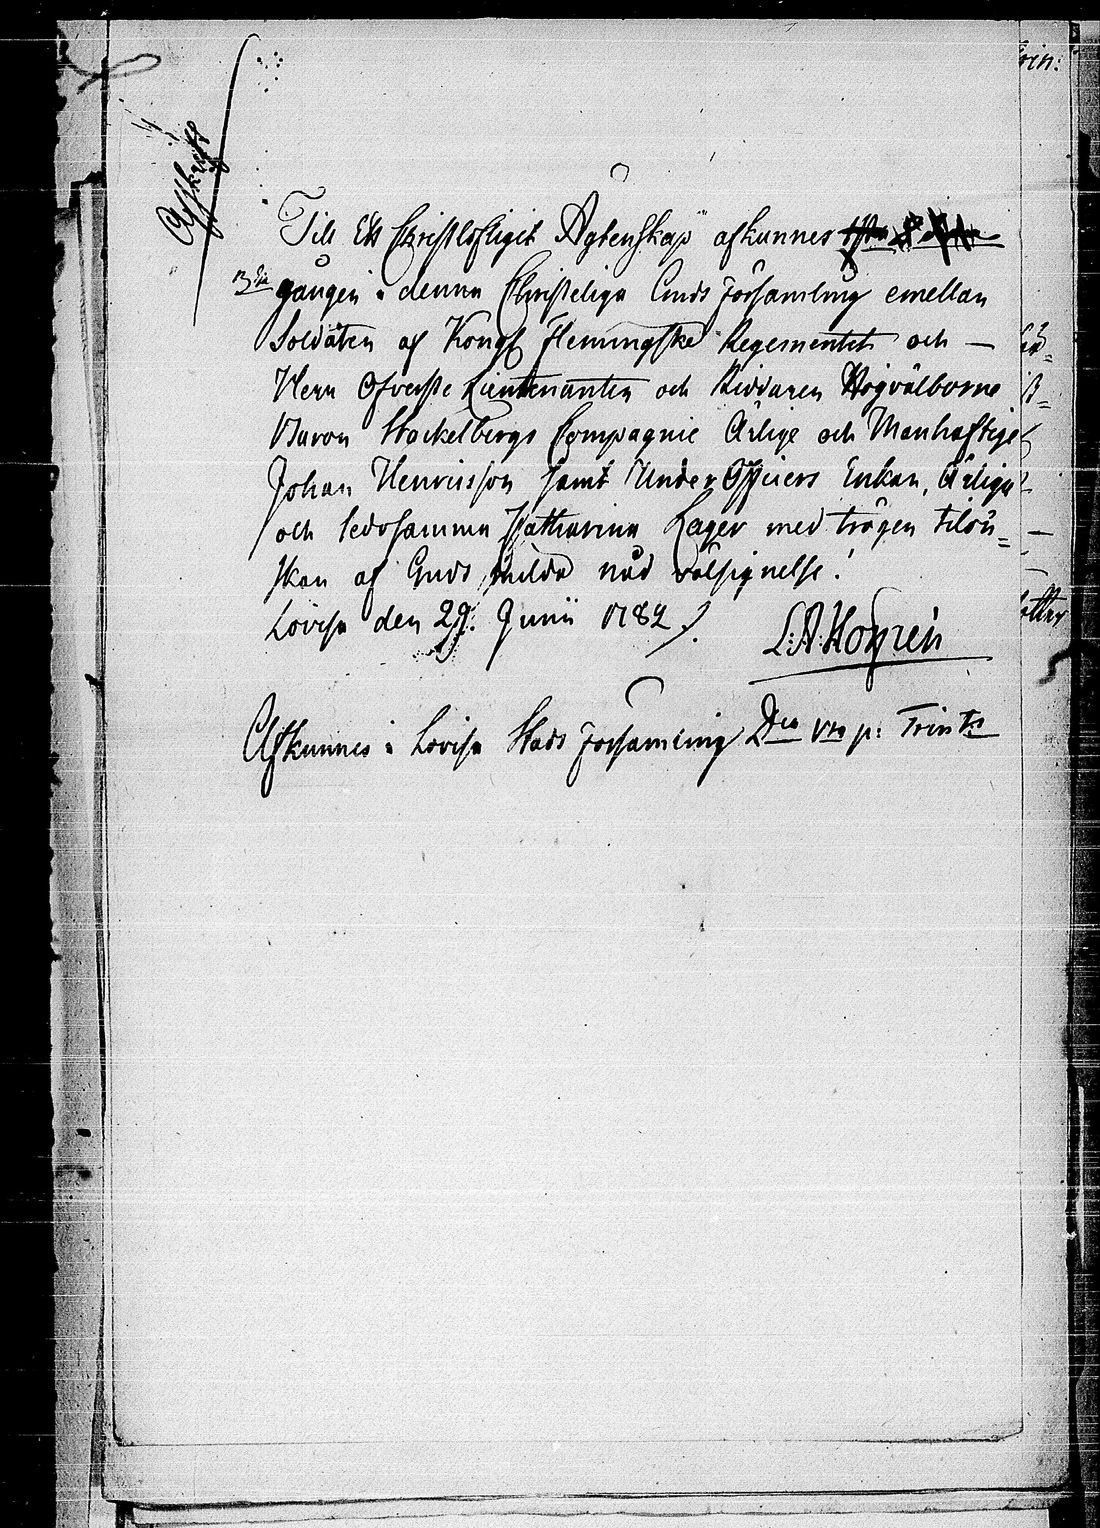 Afskrift
Till Ett Christlofligit Ägtenskap afkunnes
3die gången i denna Christeliga Guds Församling emellan
Soldaten af Kongl Flemingske Regementet och —
Herr Öfverste Lieutenanten och Riddaren Högvälborne
Baron Stackelbergs Compagnie Ärlige och Manhaftige
Johan Henricsson samt Under Officers Enkan, Ärliga
och sedosamma Catharina Lager med trägen tilön=
skan af Guds milda nåd välsignelse!
Lovisa den 29. Junii 1782.
L: A: Hoyren
Afkunnes i Lovisa Stads Församling Dca Vta p: Trinit: